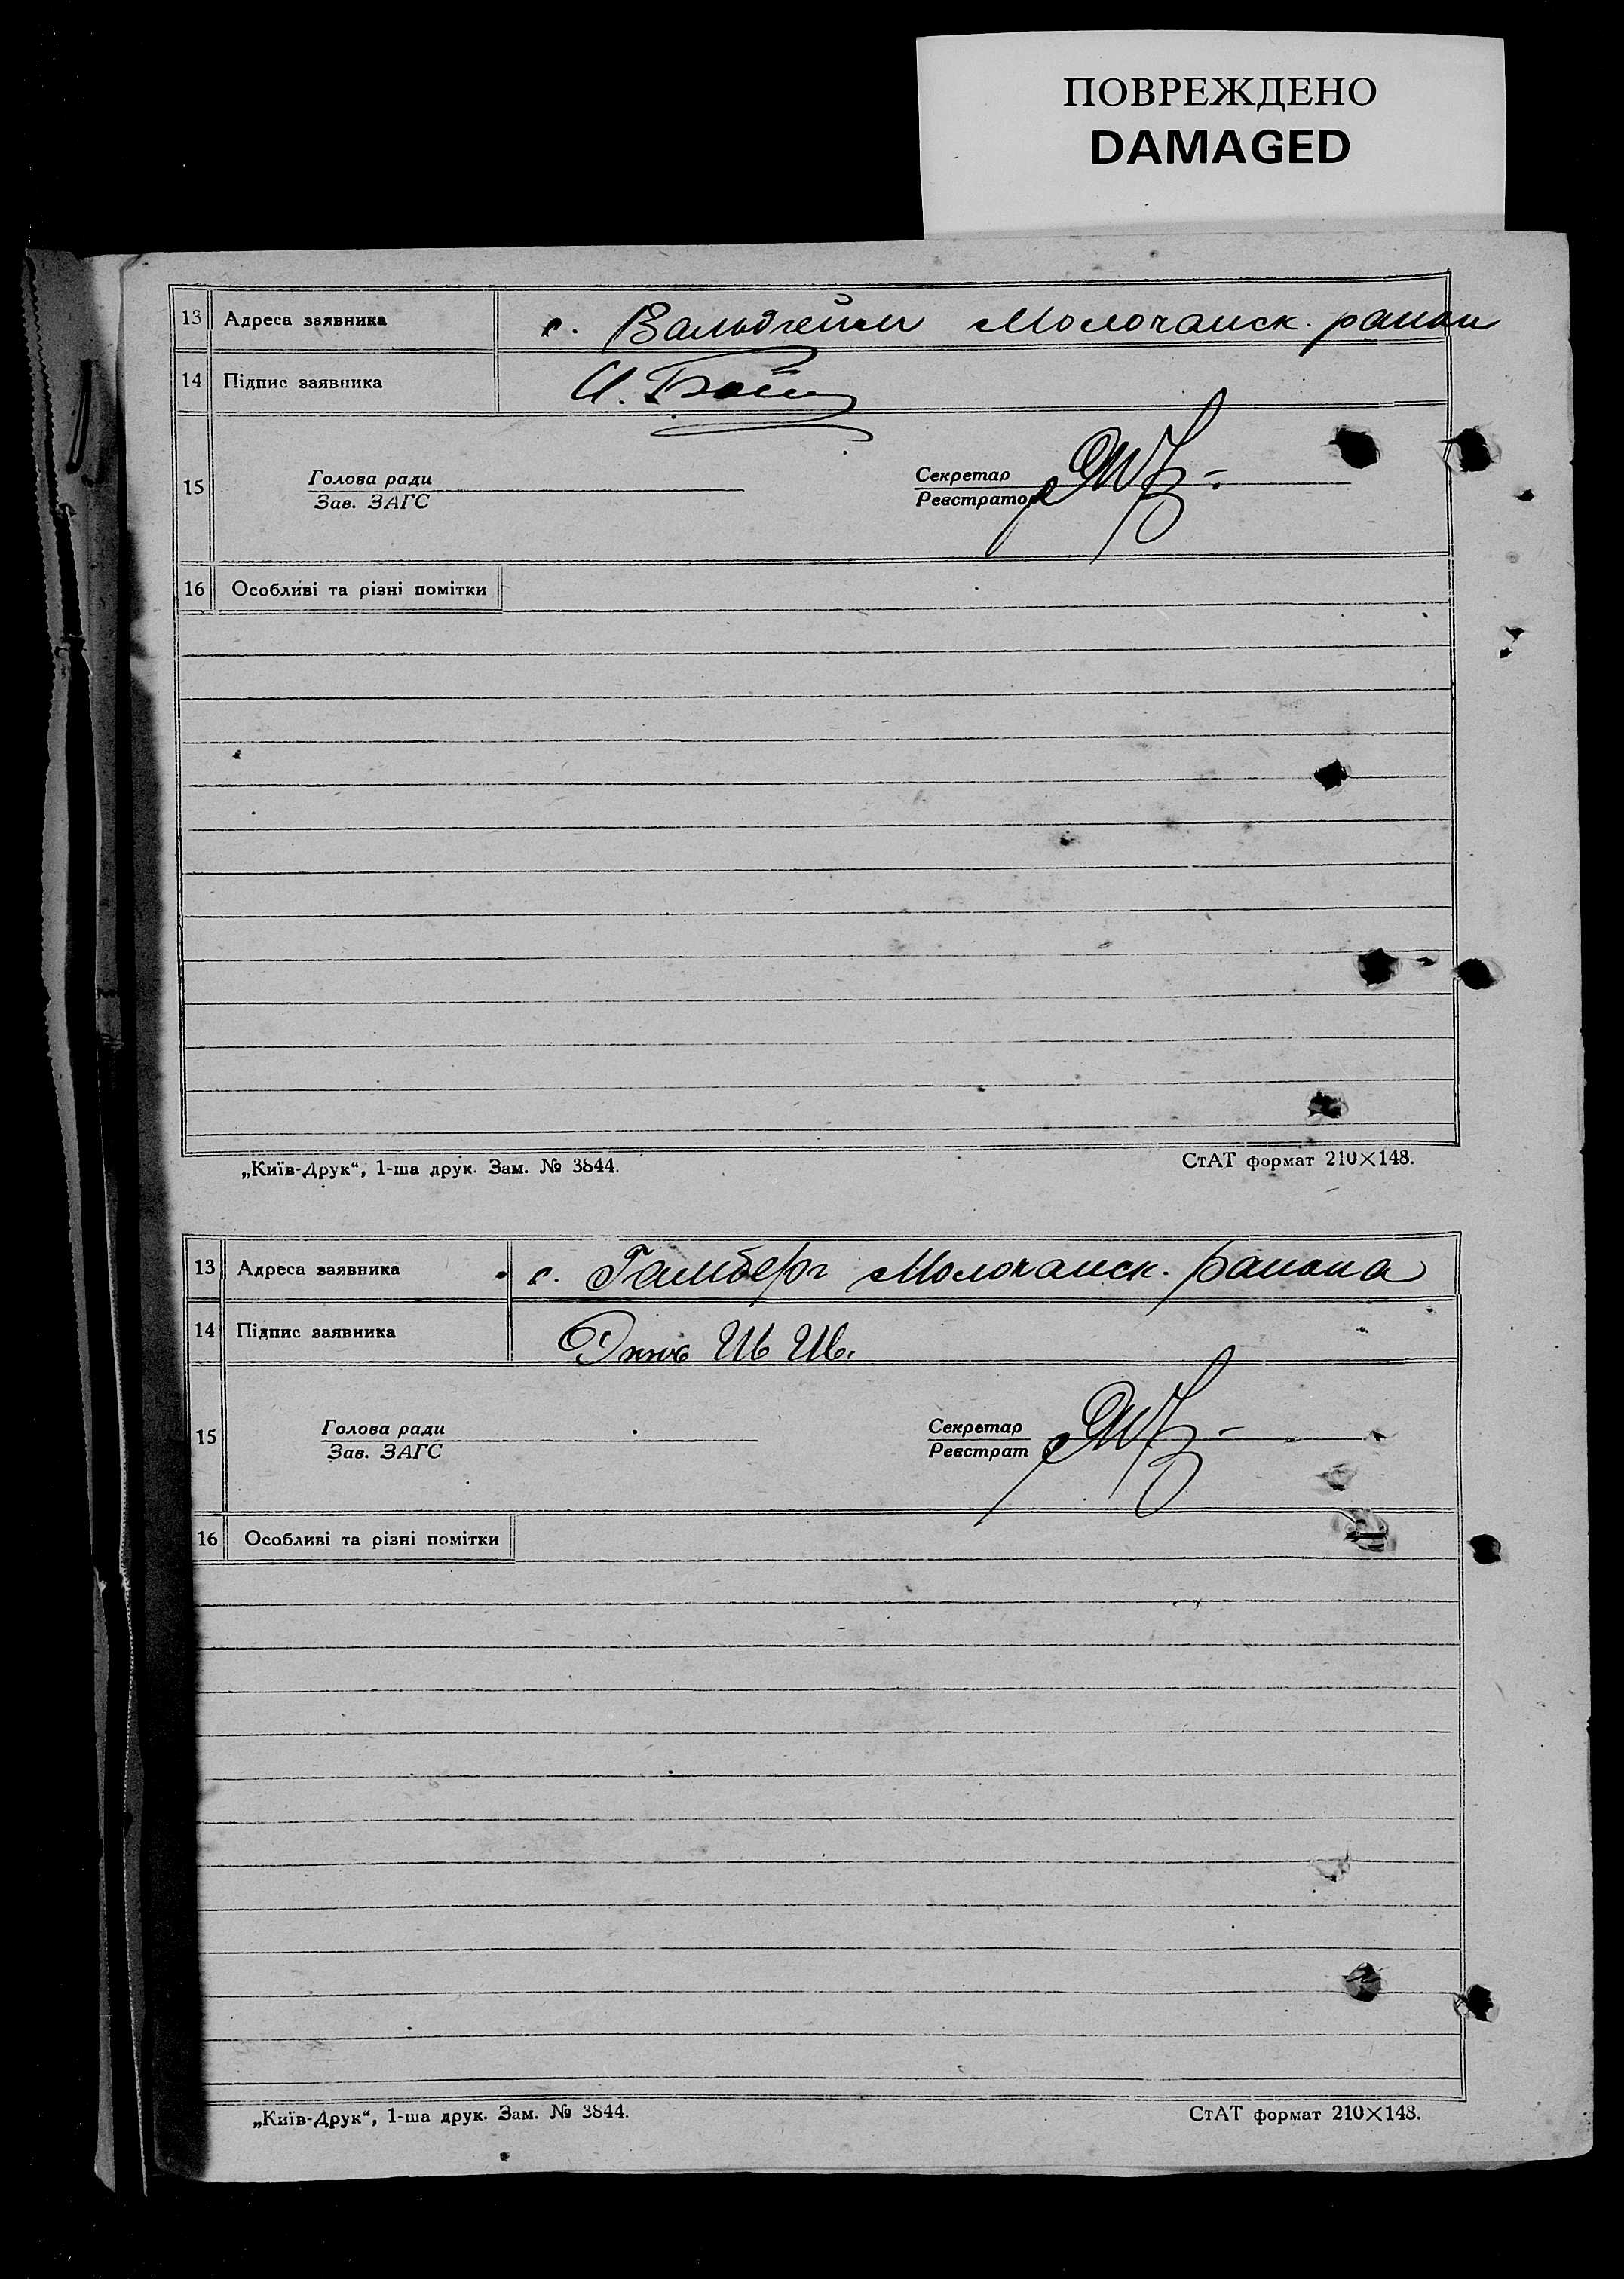 ПОВРЕЖДЕНО
DAMAGED
13 Адреса заявника с. Вальдгейм Молочанск. район
14 Підпис заявника И.
15 Голова ради Секретар
Зав. ЗАГС Реєстратор
16 Особливі та різні помітки
„Київ-Друк“, 1-ша друк. Зам. № 3844. СтАТ формат 210×148.
13 Адреса заявника с. Гамберг Молочанск. района
14 Підпис заявника
15 Голова ради Секретар
Зав. ЗАГС Реєстрат
16 Особливі та різні помітки
„Київ-Друк“, 1-ша друк. Зам. № 3844. СтАТ формат 210×148.